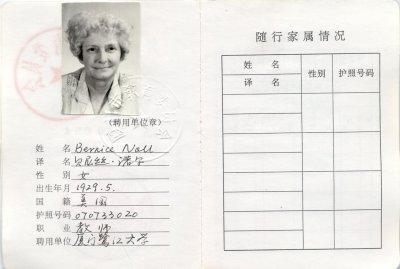 （聘用单位章）
姓 名 Bernice Nall
译 名 贝尼丝·诺尔
性 别 女
出生年月 1929.5.
国 籍 美国
护照号码 070733020
职 业 教师
聘用单位 厦门鹭江大学
随行家属情况
姓 名
译 名
性别
护照号码